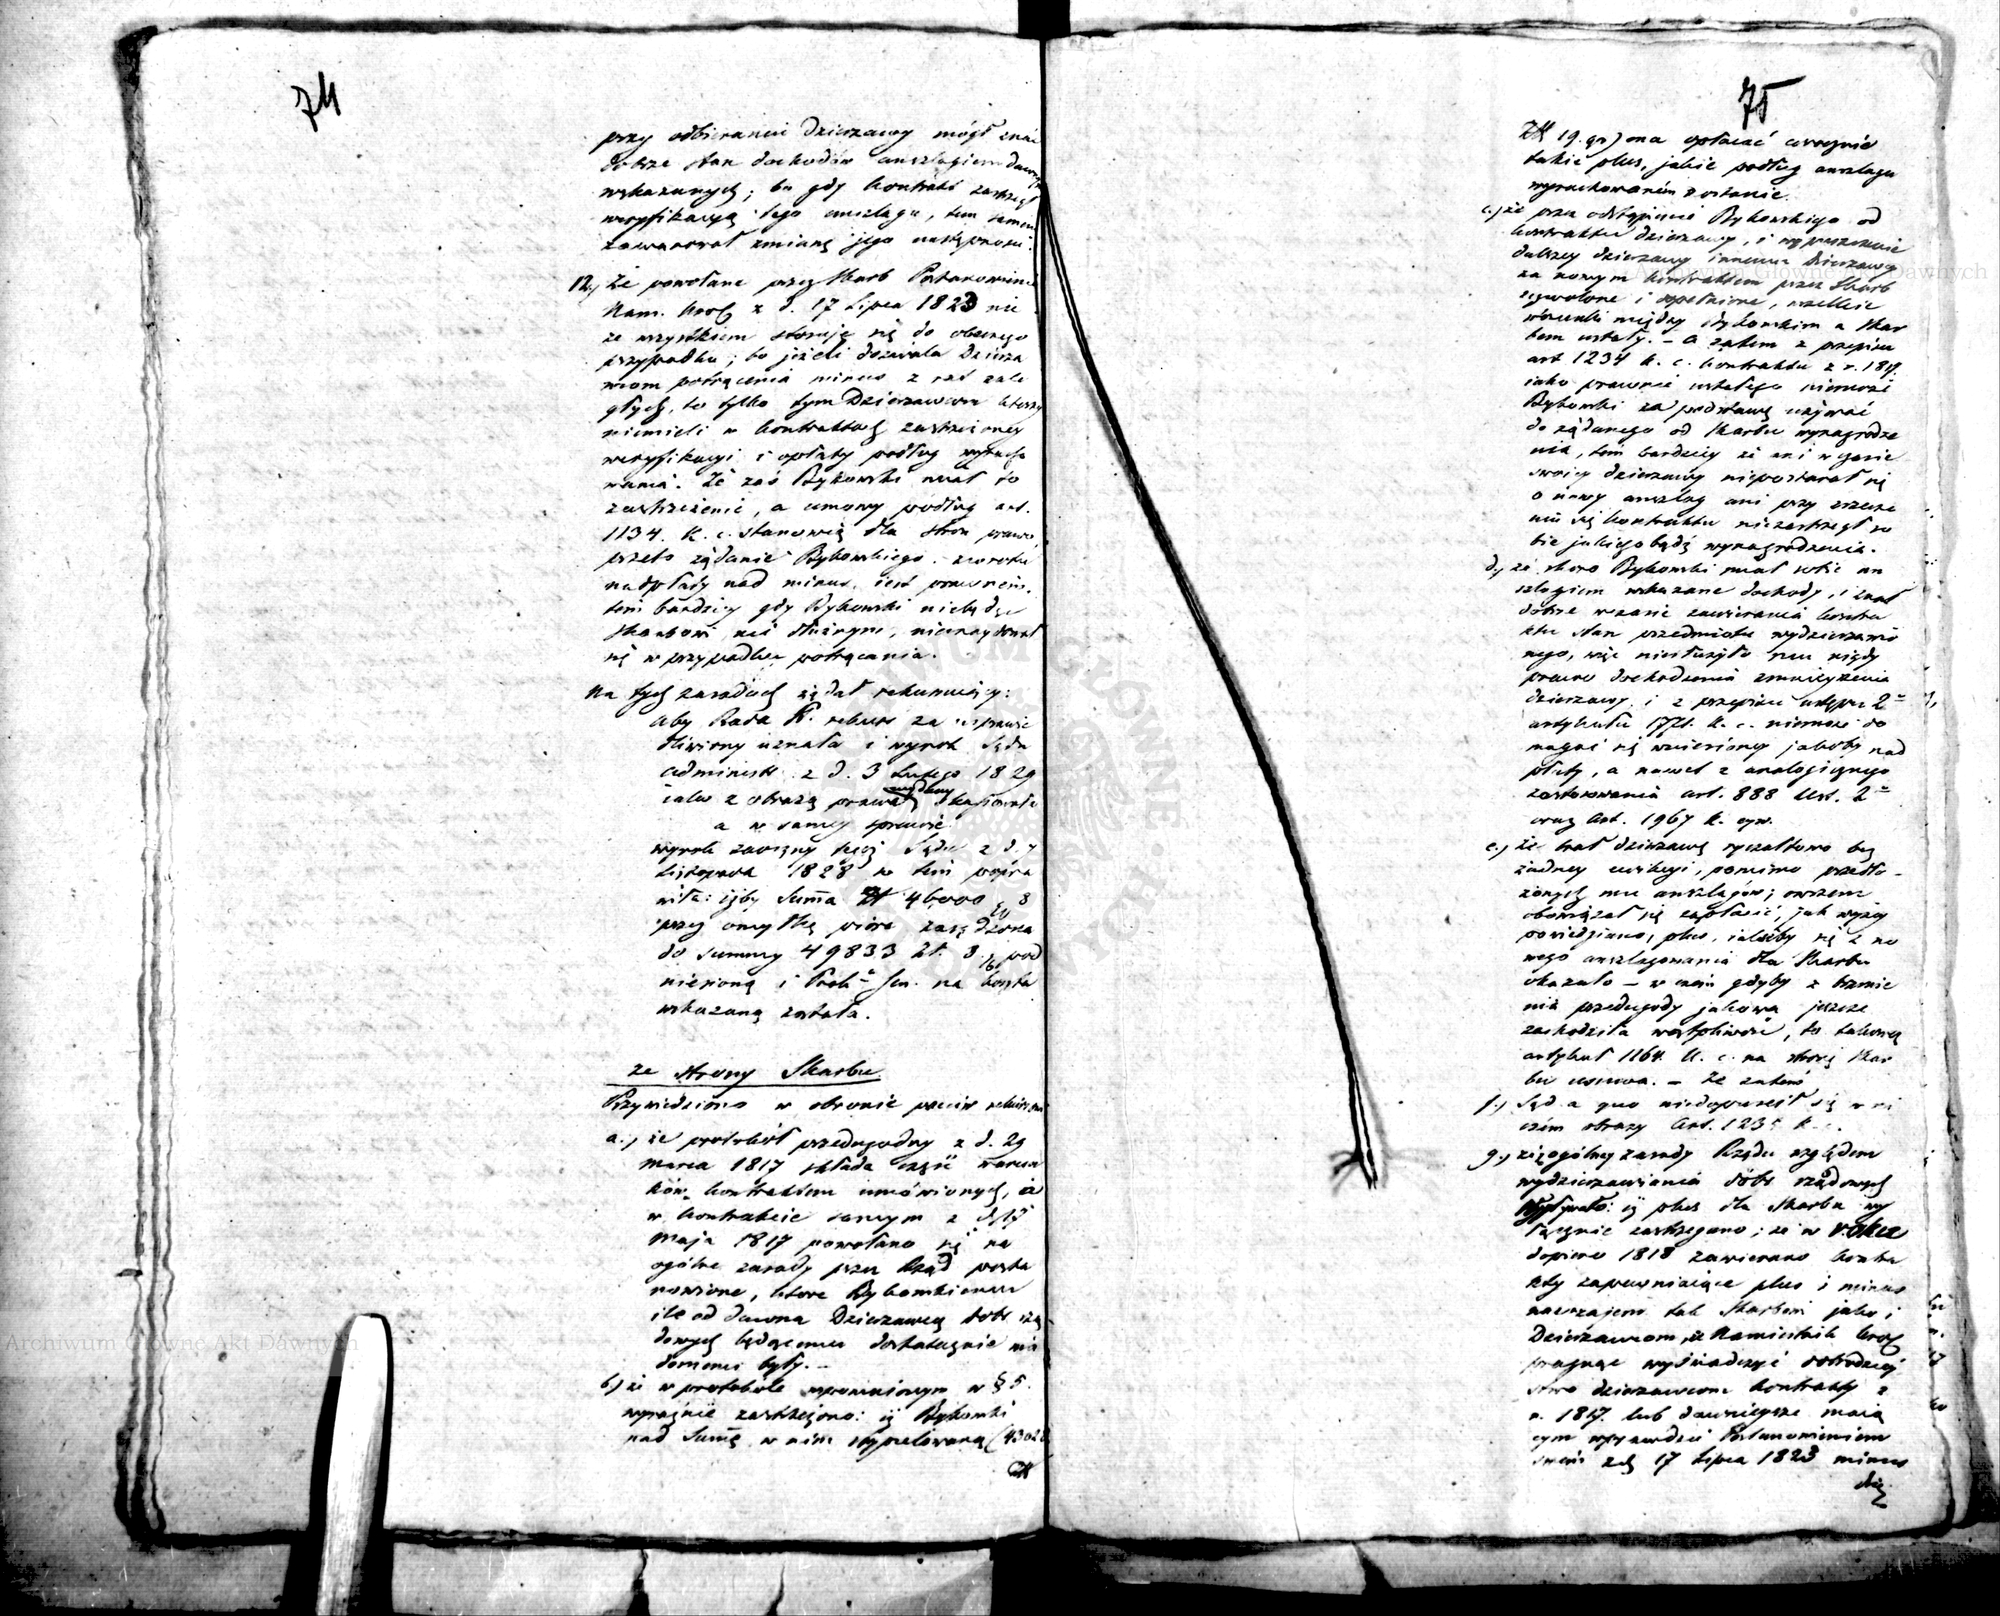 74
przy odbieraniu Dzierzawy mógł znać
dobrze stan dochodów anszlagiem dawnym
wskazanych; bo gdy kontrakt zastrzegł
weryfikacyą tego anszlagu, tem samem
zawarował zmianę jego następności.
12.) Że powołane przez Skarb Postanowienie
Nam. Król z d. 17 Lipca 1823 nie
ze wszystkiem stosuje się do obecnego
przypadku; bo jeżeli dozwala Dzierza
wcom potrącenia minus z rat zale
głych, to tylko tym Dzierzawcom którzy
niemieli w kontraktach zastrzeżoney
weryfikacyi i opłaty podług wyracho
wania. Że zaś Bykowski miał to
zastrzeżenie, a umowy podług art.
1134. K. c. stanowią dla stron prawo,
przeto żądanie Bykowskiego zwrotu
nadpłaty nad minus, jest prawnem.
tem bardziey gdy Bykowski niebędąc
Skarbowi nic dłużnym, nieznaydował
się w przypadku potrącania.
Na tych zasadach żądał rekurujący:
Aby Rada St. rekurs za usprawie
dliwiony uznała i wyrok Sądu
Administr. z d. 3 Lutego 1829
jako z obrazą prawa wydany skassowała
a w samey sprawie
wyrok zaoczny tegoż Sądu z d. 7
Listopada 1828 w tem popra
wiła: iżby Summa Zł 46000
przez omyłkę pióra zasądzona
do summy 49833 zł. 3. pod
niesioną i Prok. Jen. na koszta
wskazaną została.
ze strony Skarbu.
Przywiedziono w obronie przeciw rekursowi
a.) że protokół przedugodny z d. 29
Marca 1817 składa część warun
ków kontraktem umówionych, iż
w kontrakcie samym z d. 17
Maja 1817 powołano się na
ogólne zasady przez Rząd posta
nowione, które Bykowskiemu
ile od dawna Dzierzawcą dóbr rzą
dowych będącemu dostatecznie wia
domemi były. –
b) że w protokole wspomnionym w § 5.
wyraźnie zastrzeżono: iż Bykowski
nad Summę w nim stypulowaną (43028
Zł
75
Zł 19. gr) ma opłacać corocznie
takie plus, jakie podług anszlagu
wyrachowanem zostanie.
c.) że przez odstąpienie Bykowskiego od
kontraktu dzierzawy, i wypuszczenie
dalszey dzierzawy innemu Dzierzawcy
za nowym kontraktem przez Skarb
zezwolone i dopełnione, wszelkie
stosunki między Bykowskim a Skar
bem ustały. – A zatem z przepisu
art 1234 K. c. kontraktu z r. 1817.
jako prawnie ustałego niemoże
Bykowski za podstawę używać
do żądanego od Skarbu wynagrodze
nia, tem bardziey że ani w czasie
swoiey dzierzawy niepostarał się
o nowy anszlag ani przy zrzecze
niu się kontraktu niezastrzegł so
bie jakiegobądź wynagrodzenia.
d.) że skoro Bykowski miał sobie an
szlagiem wskazane dochody, i znał
dobrze w czasie zawierania kontra
ktu stan przedmiotu wydzierzawio
nego, więc niesłużyło mu nigdy
prawo dochodzenia zmnieyszenia
dzierzawy i z przepisu ustępu 2
artykułu 1771. K. c. niemoże do
magać się wniesioney jakoby nad
płaty, a nawet z analogicznego
zastosowania art. 888 Ust. 2
oraz Art. 1967 K. cyw.
e.) że brał dzierzawę ryczałtowo bez
żadney ewikcyi, pomimo przedło-
żonych mu anszlagów; owszem
obowiązał się zapłacić, jak wyżey
powiedziano, plus, jakieby się z no
wego anszlagowania dla Skarbu
okazało – w czem gdyby z brzmie
nia przedugody jakowa jeszcze
zachodziła wątpliwość, to takową
artykuł 1164. K. c. na stronę Skar
bu usuwa. – Że zatem
f.) Sąd a quo niedopuścił się w ni
czem obrazy Art. 1235 K. c.
g.) z ogólney zasady Rządu względem
wydzierzawiania dóbr rządowych
wypływało: iż plus dla Skarbu wy
łącznie zastrzegano; że w roku
dopiero 1818 zawierano kontra
kty zapewniające plus i minus
nawzajem tak Skarbowi jako i
Dzierzawcom, iż Namiestnik Król
pragnąc wyświadczyć dobrodziey
stwo dzierzawcom kontrakty z
r. 1817. lub dawnieysze mają
cym wyrzedzić Postanowieniem
swem z d. 17 Lipca 1823 minus
dla
Archiwum Główne Akt Dawnych
Archiwum Główne Akt Dawnych